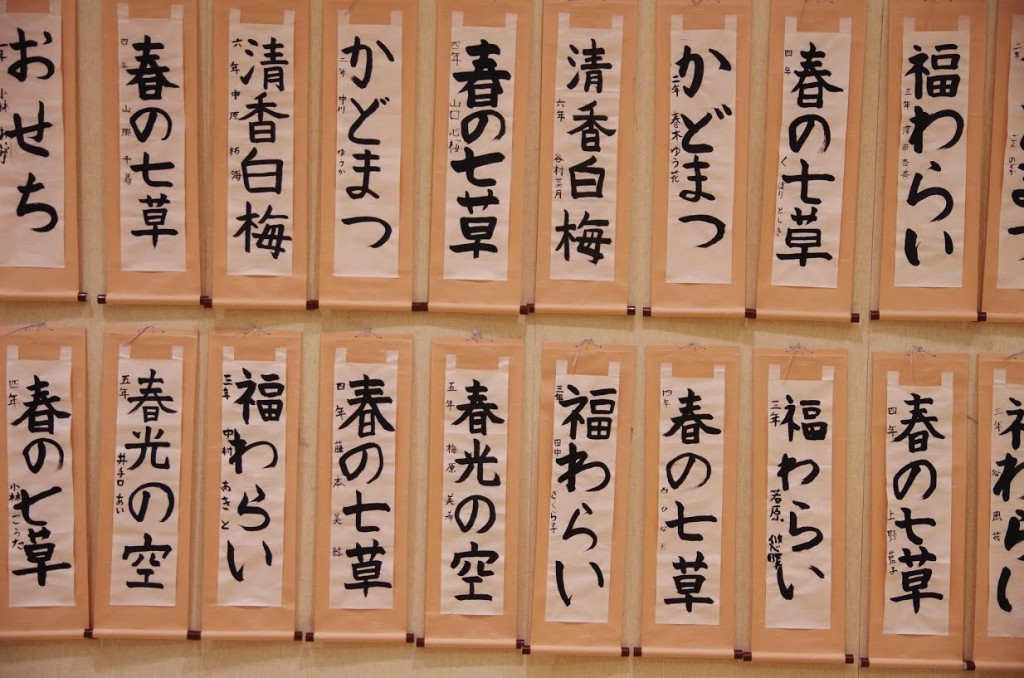 おせち
春の七草
四年
清香白梅
六年
かどまつ
二年
中川
ゆうか
春の七草
四年
山口心桜
清香白梅
六年
谷村
かどまつ
二年
春木ゆう花
春の七草
四年
福わらい
三年
春の七草
四年
小林こうた
春光の空
五年
井チロあい
福わらい
三年
中村あきと
春の七草
四年
藤本美
春光の空
五年
梅原美希
福わらい
三年
田中さくら子
春の七草
四年
福わらい
三年
若原
春の七草
四年
上野
三年